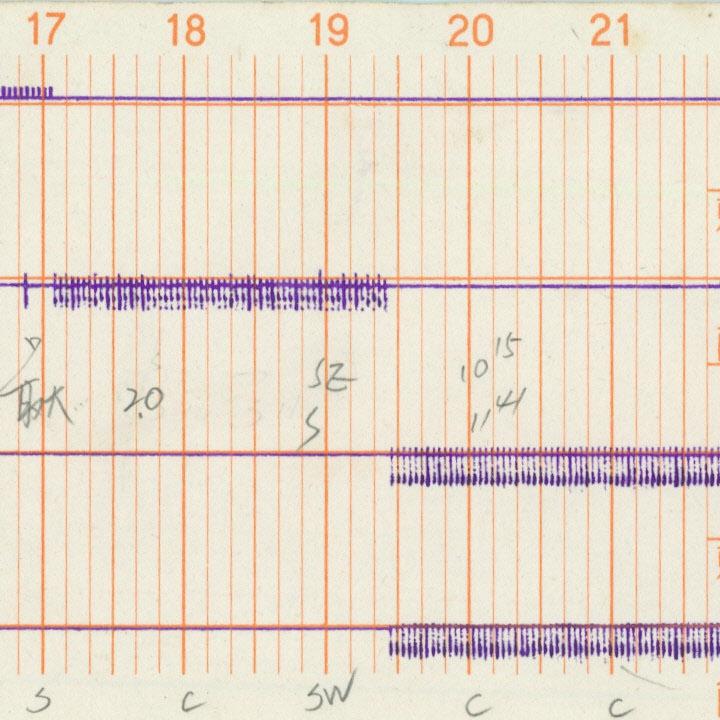 17 18 19 20 21
最大 2.0
SE
S
10 15
11 41
S C SW C C